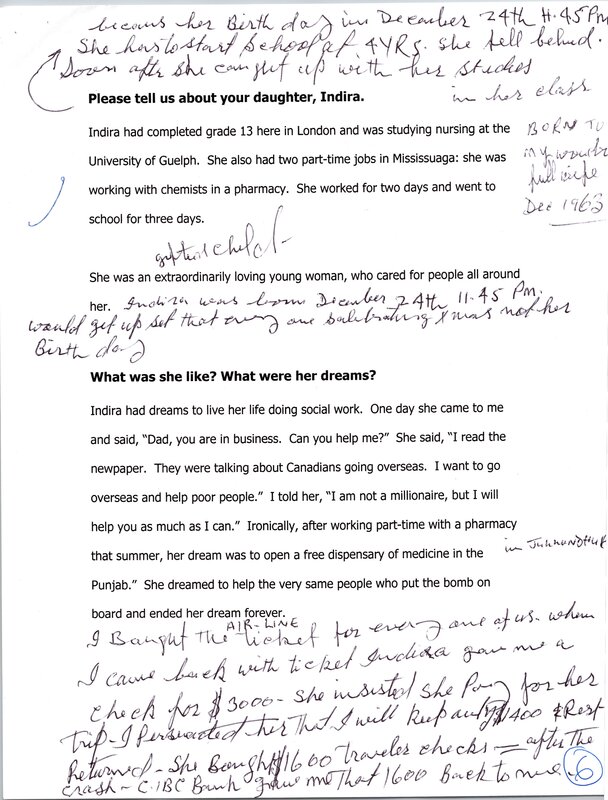 becaus her Birth day in December 24th 11.45 PM
She has to start School at 4 YRS. she fell behind.
Soon after she caught up with her studies
in her class
Please tell us about your daughter, Indira.
Indira had completed grade 13 here in London and was studying nursing at the
University of Guelph. She also had two part-time jobs in Mississuaga: she was
working with chemists in a pharmacy. She worked for two days and went to
school for three days.
BORN TO
my
Dec 1963
gifted child
She was an extraordinarily loving young woman, who cared for people all around
her. Indira was born December 24th 11.45 PM.
would get up set that every one not her
Birth day
What was she like? What were her dreams?
Indira had dreams to live her life doing social work. One day she came to me
and said, “Dad, you are in business. Can you help me?” She said, “I read the
newspaper. They were talking about Canadians going overseas. I want to go
overseas and help poor people.” I told her, “I am not a millionaire, but I will
help you as much as I can.” Ironically, after working part-time with a pharmacy
that summer, her dream was to open a free dispensary of medicine in the
in
Punjab.” She dreamed to help the very same people who put the bomb on
board and ended her dream forever.
AIR-LINE
I Baught The ticket for every one of us. when
I came back with ticket Indira gave me a
check for $3000 - She insisted she Pay for her
trip - I Persuaded her That I will keep only $1400 & Rest
Returned - She Baught $1600 traveler checks = after The
crash - C.IBC Bank gave me That 1600 Back to me.
6